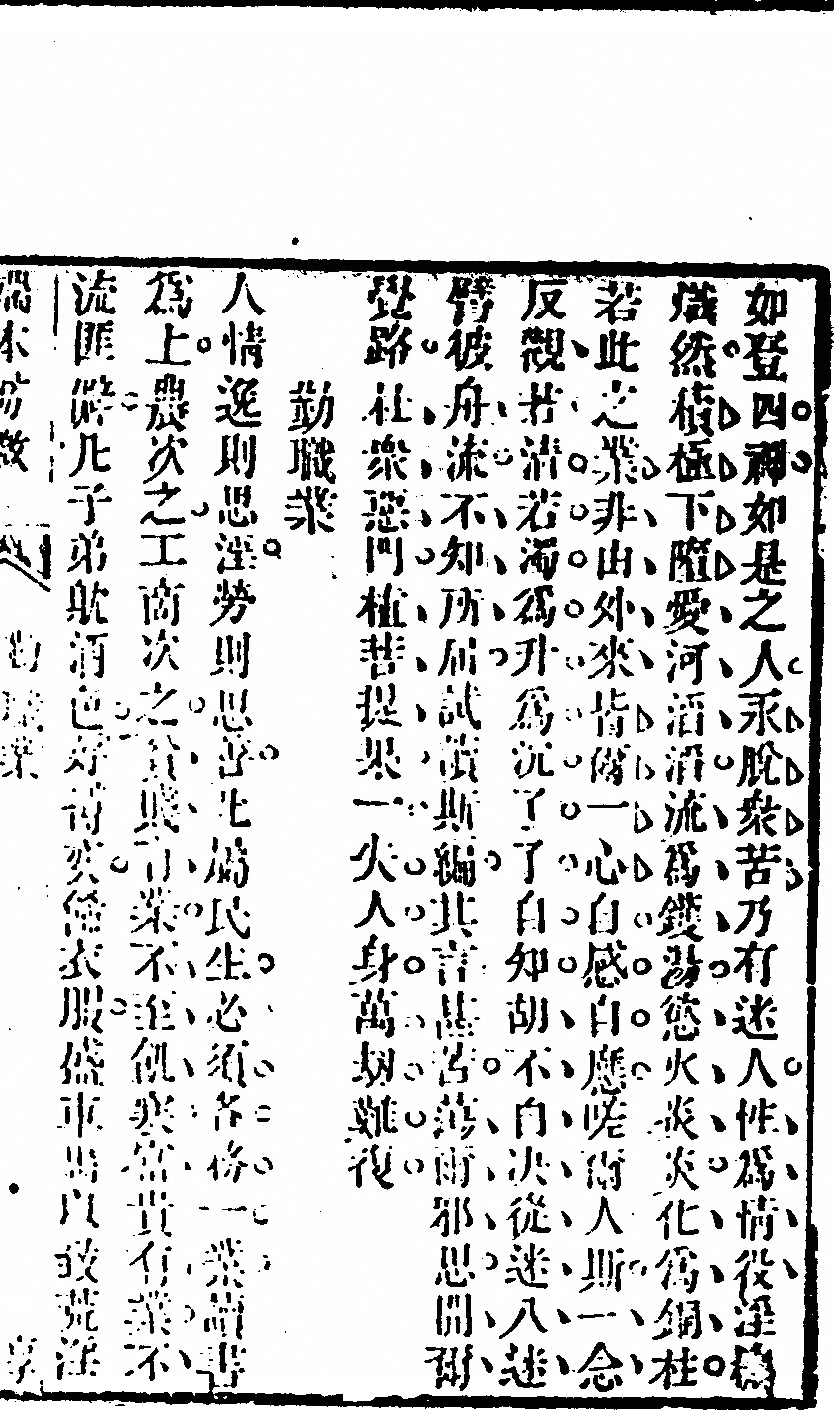 如登四禪如是之人永脫衆苦乃有迷人性爲情役淫
熾然積極下墮愛河滔滔流爲鑊湯慾火炎炎化爲銅柱
若此之業非由外來皆爾一心自感自應嗟爾人斯一念
反觀若清若濁爲升爲沉了了自知胡不自決從迷入迷
譬彼舟流不知所屆試讀斯編其言甚苦蕩爾邪思開爾
覺路杜衆惡門植菩提果一失人身萬劫難復
勤職業
人情逸則思淫勞則思善凡屬民生必須各務一業讀書
爲上農次之工商次之貧賤有業不至飢寒富貴有業不
流匪僻凡子弟耽酒色好博奕俻衣服盛車馬以致荒淫
端本防微
勤職業